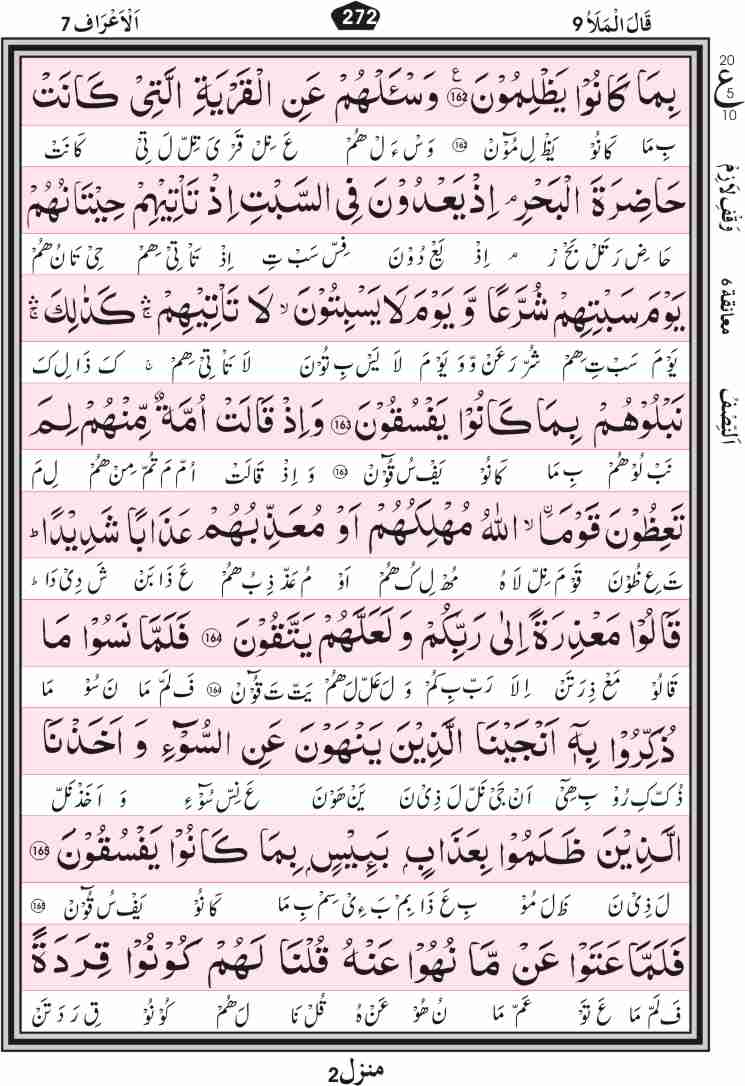 قَالَ الْمَلَاُ 9 272 اَلْاَعْرَاف 7
بِمَا كَانُوْا يَظْلِمُوْنَ 162 ع وَسْـَٔلْهُمْ عَنِ الْقَرْيَةِ الَّتِیْ كَانَتْ
20 ع 5 10
بِ مَا كَانُوْ يَظْ لِ مُوْٓنْ 162 وَسْ ءَ لْ هُمْ عَ نِلْ قَرْ یَ تِلْ لَ تِیْ كَا نَتْ
حَاضِرَةَ الْبَحْرِ م اِذْ يَعْدُوْنَ فِی السَّبْتِ اِذْ تَاْتِيْهِمْ حِيْتَانُهُمْ
وَقْفِ لَازِمْ
حَا ضِ رَ تَلْ بَحْ رْ م اِذْ يَعْ دُوْ نَ فِسْ سَبْ تِ اِذْ تَاْ تِیْ هِمْ حِیْ تَا نُ هُمْ
يَوْمَ سَبْتِهِمْ شُرَّعًا وَّ يَوْمَ لَا يَسْبِتُوْنَ ۙ لَا تَاْتِيْهِمْ ۛۚ كَذٰلِكَ ۛۚ
معانقة 6
يَوْ مَ سَبْ تِ هِمْ شُرْ رَ عَنْ وَ وَ يَوْ مَ لَا يَسْ بِ تُوْنَ لَا تَاْ تِیْ هِمْ كَ ذَا لِ كَ
نَبْلُوْهُمْ بِمَا كَانُوْا يَفْسُقُوْنَ 163 وَاِذْ قَالَتْ اُمَّةٌ مِّنْهُمْ لِمَ
اَلنِّصْفُ
نَبْ لُوْ هُمْ بِ مَا كَا نُوْ يَفْ سُ قُوْٓنْ 163 وَ اِذْ قَا لَتْ اُمْ مَ تُمْ مِنْ هُمْ لِ مَ
تَعِظُوْنَ قَوْمَا ۙ اللّٰهُ مُهْلِكُهُمْ اَوْ مُعَذِّبُهُمْ عَذَابًا شَدِيْدًا ؕ
تَ عِ ظُوْنَ قَوْ مَ نِلْ لَا هُ مُهْ لِ كُ هُمْ اَوْ مُ عَذْ ذِ بُ هُمْ عَ ذَا بَنْ شَ دِیْ دَا ؕ
قَالُوْا مَعْذِرَةً اِلٰی رَبِّكُمْ وَ لَعَلَّهُمْ يَتَّقُوْنَ 164 فَلَمَّا نَسُوْا مَا
قَا لُوْ مَعْ ذِ رَ تَنْ اِ لَا رَبْ بِ كُمْ وَ لَ عَلْ لَ هُمْ يَتْ تَ قُوْٓنْ 164 فَ لَمْ مَا نَ سُوْ مَا
ذُكِّرُوْا بِهٖۤ اَنْجَيْنَا الَّذِيْنَ يَنْهَوْنَ عَنِ السُّوْٓءِ وَ اَخَذْنَا
ذُكْ كِ رُوْ بِ هِیْٓ اَنْ جَیْ نَلْ لَ ذِیْ نَ يَنْ هَوْنَ عَ نِسْ سُوْٓ ءِ وَ اَ خَذْ نَلْ
الَّذِيْنَ ظَلَمُوْا بِعَذَابٍۭ بَـِٕيْسٍۭ بِمَا كَانُوْا يَفْسُقُوْنَ 165
لَ ذِیْ نَ ظَ لَ مُوْ بِ عَ ذَا بِمْ بَ ءِیْ سِمْ بِ مَا كَا نُوْ يَفْ سُ قُوْٓنْ 165
فَلَمَّا عَتَوْا عَنْ مَّا نُهُوْا عَنْهُ قُلْنَا لَهُمْ كُوْنُوْا قِرَدَةً
فَ لَمْ مَا عَ تَوْ عَمْ مَا نُ هُوْ عَنْ هُ قُلْ نَا لَ هُمْ كُوْ نُوْ قِ رَ دَ تَنْ
منزل 2